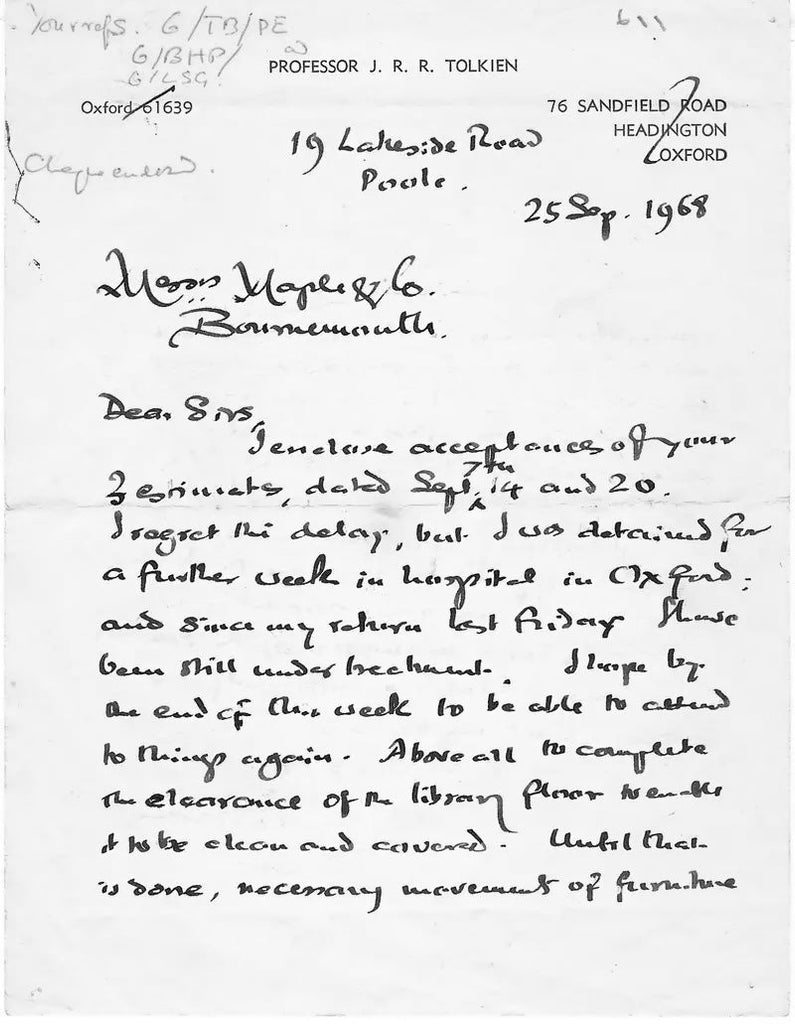 Your refs. G/TB/PE
G/BHP/
G/LSG
PROFESSOR J. R. R. TOLKIEN
Oxford 61639
76 SANDFIELD ROAD
HEADINGTON
OXFORD
19 Lakeside Road
Poole.
25 Sep. 1968
Messrs Maple & Co.
Bournemouth.
Dear Sirs,
I enclose acceptances of your
3 estimates, dated Sept. 7th 14 and 20.
I regret the delay, but I was detained for
a further week in hospital in Oxford;
and since my return last Friday I have
been still under treatment. I hope by
the end of this week to be able to attend
to things again. Above all to complete
the clearance of the library floor to enable
it to be clean and covered. Until that
is done, necessary movement of furniture